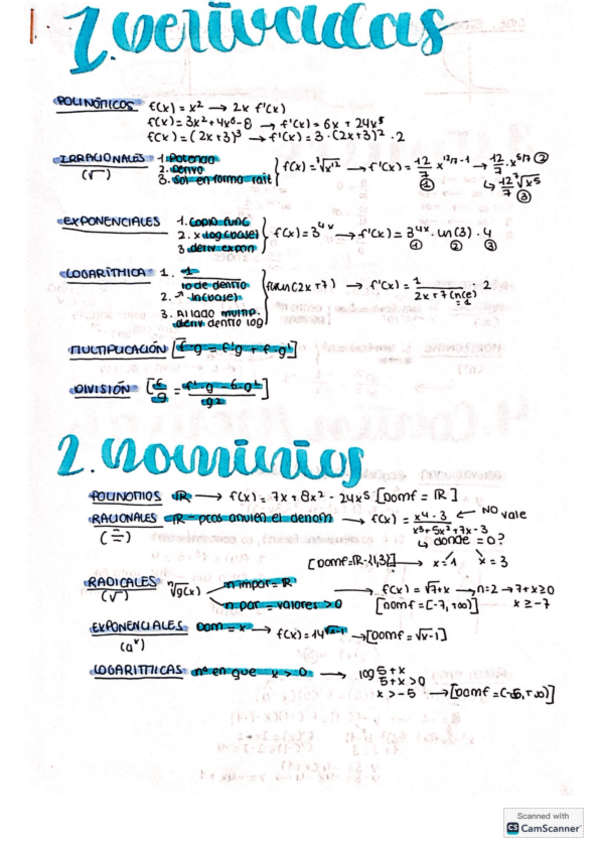 1. Derivadas
POLINÓMICOS f(x) = x² → 2x f'(x)
f(x) = 3x² + 4x⁶ - 8 → f'(x) = 6x + 24x⁵
f(x) = (2x+3)³ → f'(x) = 3·(2x+3)²·2
IRRACIONALES (√‾) 1. Potencia
2. Derivo
3. Sol en forma raíz
f(x) = ⁷√x¹² → f'(x) = 12/7 x^(12/7 - 1) ① → 12/7 · x^(5/7) ②
↳ 12/7 ⁷√x⁵ ③
EXPONENCIALES 1. Copio func
2. x log (base)
3. deriv expon
f(x) = 3^(4x) → f'(x) = 3^(4x) ① · ln(3) ② · 4 ③
LOGARÍTMICA 1. 1 / lo de dentro
2. ↗ · ln(base)
3. Al lado multip. deriv dentro log
ln(2x+7) → f'(x) = 1 / 2x+7 (ln(e) = 1) · 2
MULTIPLICACIÓN [f·g = f'g + f·g']
DIVISIÓN [f/g = f'·g - f·g' / g²]
2. Dominios
POLINOMIOS ℝ → f(x) = 7x + 8x² - 24x⁵ [Domf = ℝ]
RACIONALES (÷) ℝ - ptos anulen el denom → f(x) = x⁴ - 3 / x³+5x²+7x-3 ← NO vale
↳ donde = 0?
[Domf = ℝ-{1,3}] → x = 1 x = 3
RADICALES (√‾) ⁿ√g(x) n impar = ℝ
n par = valores > 0 → f(x) = √7+x → n=2 → 7+x ≥ 0
[Domf = [-7, +∞)] x ≥ -7
EXPONENCIALES (aˣ) Dom = x → f(x) = 14^(√x-1) → [Domf = √x-1]
LOGARITMICAS nº en que x > 0 → log 5+x
5+x > 0
x > -5 → [Domf = (-5, +∞)]
Scanned with
CS CamScanner